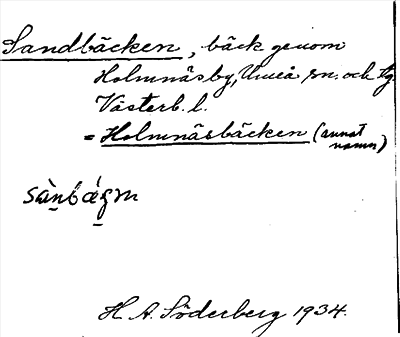 Sandbäcken, bäck genom
Holmnäsby, Umeå sn. och tg
Västerb. l.
= Holmnäsbäcken (annat namn)
H. A. Söderberg 1934.